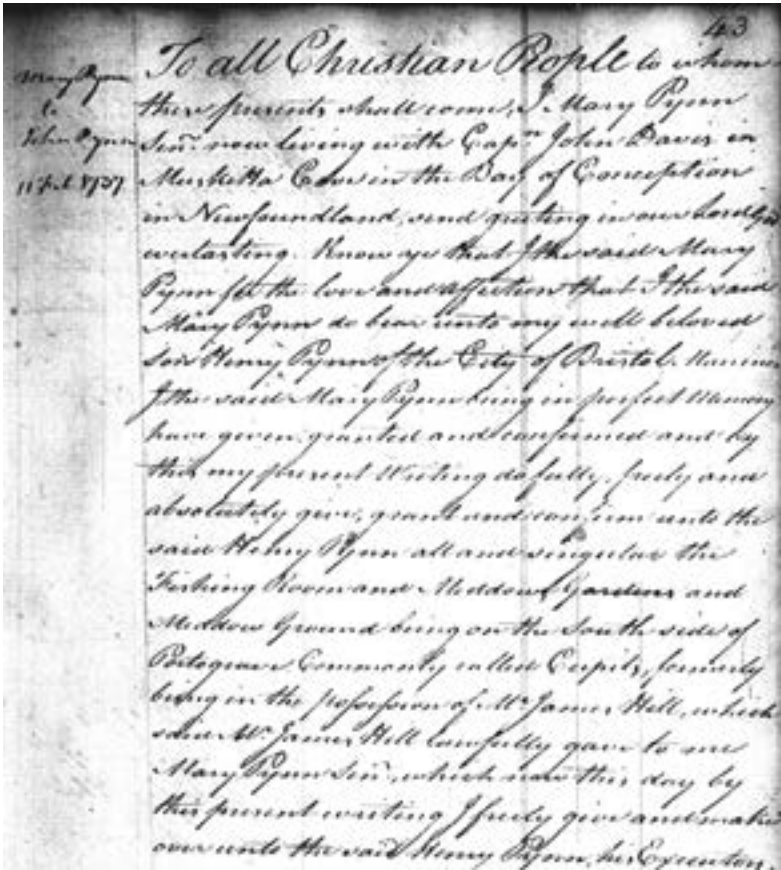 43
Mary Pynn
to
John Pynn
11 Feb 1737
To all Christian People to whom
these presents shall come, I Mary Pynn
Senr. now living with Capn. John Davis in
Musketta Cove in the Bay of Conception
in Newfoundland, send greeting in our Lord God
everlasting. Know ye that I the said Mary
Pynn for the love and affection that I the said
Mary Pynn do bear unto my well beloved
son Henry Pynn of the City of Bristol Mariner
I the said Mary Pynn being in perfect Memory
have given, granted and confirmed and by
this my present Writing do fully, freely and
absolutely give, grant and confirm unto the
said Henry Pynn all and singular the
Fishing Room and Meddows Gardens and
Meddow Ground being on the South side of
Portograve Commonly called Cupits, formerly
being in the possession of Mr. James Hill, which
said Mr. James Hill lawfully gave to me
Mary Pynn Senr., which now this day by
this present writing I freely give and make
over unto the said Henry Pynn, his Executors,